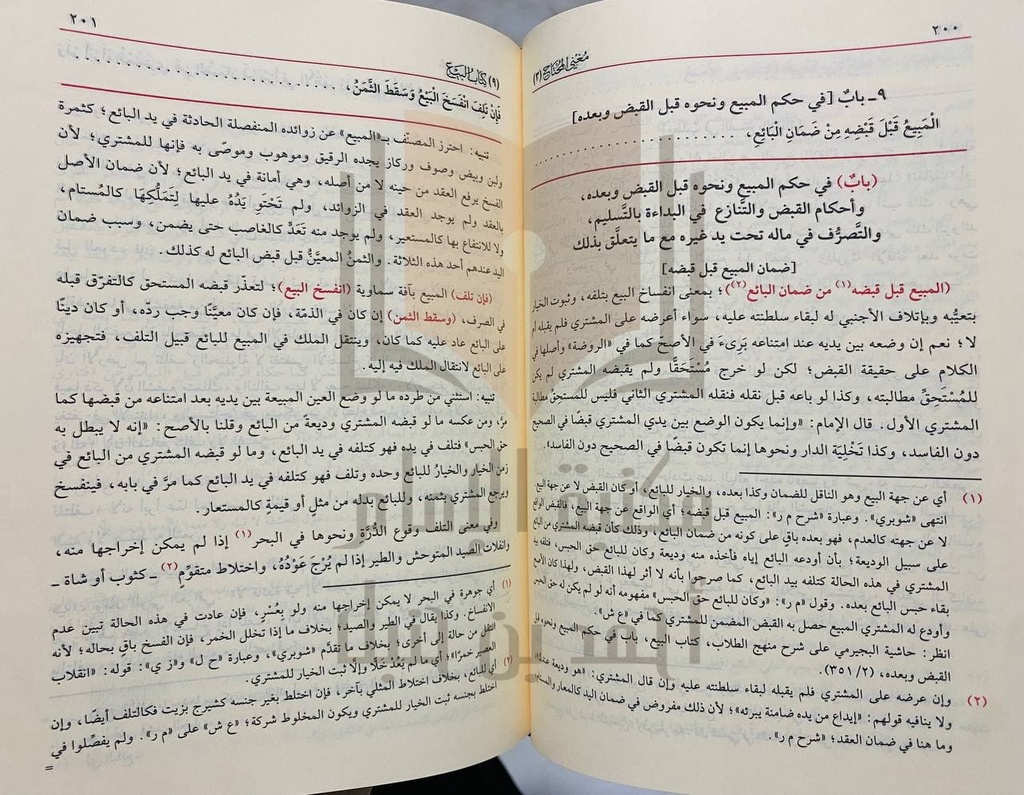 ٢٠٠
مغني المحتاج (٣)
٩ـ بابٌ [في حكم المبيع ونحوه قبل القبض وبعده]
الْمَبِيعُ قَبْلَ قَبْضِهِ مِنْ ضَمَانِ الْبَائِعِ، . . . . . . . . . . . . . . . . . . . . . . . .
(بابٌ) في حكم المبيع ونحوه قبل القبض وبعده،
وأحكام القبض والتَّنازع في البداءة بالتَّسليم،
والتَّصرُّف في ماله تحت يد غيره مع ما يتعلَّق بذلك
[ضمان المبيع قبل قبضه]
(المبيع قبل قبضه(١) من ضمان البائع(٢))؛ بمعنى انفساخ البيع بتلفه، وثبوت الخيار
بتعيُّبه وبإتلاف الأجنبي له لبقاء سلطنته عليه، سواء أعرضه على المشتري فلم يقبله أم
لا؛ نعم إن وضعه بين يديه عند امتناعه بَرِىءَ في الأصحّ كما في «الروضة» وأصلها في
الكلام على حقيقة القبض؛ لكن لو خرج مُسْتَحَقًّا ولم يقبضه المشتري لم يكن
للمُسْتَحِقِّ مطالبته، وكذا لو باعه قبل نقله فنقله المشتري الثاني فليس للمستحِقّ مطالبة
المشتري الأول. قال الإمام: «وإنما يكون الوضع بين يدي المشتري قبضًا في الصحيح
دون الفاسد، وكذا تَخْلِيَة الدار ونحوها إنما تكون قبضًا في الصحيح دون الفاسد».
(١) أي عن جهة البيع وهو الناقل للضمان وكذا بعده، والخيار للبائع، أو كان القبض لا عن جهة البيع.
انتهى «شوبري». وعبارة «شرح م ر»: المبيع قبل قبضه؛ أي الواقع عن جهة البيع، فالقبض الواقع
لا عن جهته كالعدم، فهو بعده باقٍ على كونه من ضمان البائع، وذلك كأن قبضه المشتري من البائع
على سبيل الوديعة؛ بأن أودعه البائع إياه فأخذه منه وديعة وكان للبائع حق الحبس، فتلفه بيد
المشتري في هذه الحالة كتلفه بيد البائع، كما صرحوا بأنه لا أثر لهذا القبض، ولهذا كان الأصح
بقاء حبس البائع بعده. وقول «م ر»: «وكان للبائع حق الحبس» مفهومه أنه لو لم يكن له حق الحبس
وأودع له المشتري المبيع حصل به القبض المضمن للمشتري كما في «ع ش».
انظر: حاشية البجيرمي على شرح منهج الطلاب، كتاب البيع، باب في حكم المبيع ونحوه قبل
القبض وبعده، (٢/ ٣٥١).
(٢) وإن عرضه على المشتري فلم يقبله لبقاء سلطنته عليه وإن قال المشتري: «هو وديعة عندك»،
ولا ينافيه قولهم: «إيداع من يده ضامنة يبرئه»؛ لأن ذلك مفروض في ضمان اليد كالمعار
وما هنا في ضمان العقد؛ «شرح م ر».
٢٠١
(٩) كتاب البيع
فَإِنْ تَلِفَ انْفَسَخَ الْبَيْعُ وَسَقَطَ الثَّمَنُ، . . . . . . . . . . . . . . . . . . . . . . . .
تنبيه: احترز المصنِّف بـ«المبيع» عن زوائده المنفصلة الحادثة في يد البائع؛ كثمرة
ولبن وبيض وصوف وركاز يجده الرقيق وموهوب وموصًى به فإنها للمشتري؛ لأن
الفسخ يرفع العقد من حينه لا من أصله، وهي أمانة في يد البائع؛ لأن ضمان الأصل
بالعقد ولم يوجد العقد في الزوائد، ولم تَحْتَوِ يَدُهُ عليها لِتَمَلُّكِهَا كالمُستام،
ولا للانتفاع بها كالمستعير، ولم يوجد منه تَعَدٍّ كالغاصب حتى يضمن، وسبب ضمان
اليد عندهم أحد هذه الثلاثة. والثمنُ المعيَّنُ قبل قبض البائع له كذلك.
(فإن تلف) المبيع بآفة سماوية (انفسخ البيع)؛ لتعذّر قبضه المستحق كالتفرّق قبله
في الصرف، (وسقط الثمن) إن كان في الذمّة، فإن كان معيَّنًا وجب ردّه، أو كان دينًا
على البائع عاد عليه كما كان، وينتقل الملك في المبيع للبائع قبيل التلف، فتجهيزه
على البائع لانتقال الملك فيه إليه.
تنبيه: استثني من طرده ما لو وضع العين المبيعة بين يديه بعد امتناعه من قبضها كما
مرَّ، ومن عكسه ما لو قبضه المشتري وديعةً من البائع وقلنا بالأصح: «إنه لا يبطل به
حق الحبس» فتلف في يده فهو كتلفه في يد البائع، وما لو قبضه المشتري من البائع في
زمن الخيار والخيارُ للبائع وحده وتلف فهو كتلفه في يد البائع كما مرَّ في بابه، فينفسخ
ويرجع المشتري بثمنه، وللبائع بدله من مثلٍ أو قيمة كالمستعار.
وفي معنى التلف وقوع الدُّرَّة ونحوها في البحر(١) إذا لم يمكن إخراجها منه،
وانفلات الصيد المتوحش والطير إذا لم يُرْجَ عَوْدُهُ، واختلاط متقوِّم(٢) ـ كثوب أو شاة ـ
(١) أي جوهرة في البحر لا يمكن إخراجها منه ولو بِعُسْرٍ، فإن عادت في هذه الحالة تبين عدم
الانفساخ. وكذا يقال في الطير والصيد؛ بخلاف ما إذا تخلل الخمر، فإن الفسخ باقٍ بحاله؛ لأنه
انتقل من حالة إلى أخرى؛ بخلاف ما تقدَّم «شوبري»، وعبارة «ح ل» و«ز ي»: قوله: «انقلاب
العصير خمرًا»؛ أي ما لم يَعُدْ خَلًّا وإلَّا ثبت الخيار للمشتري.
(٢) أي للبائع، بخلاف اختلاط المثلي بآخر، فإن اختلط بغير جنسه كشيرج بزيت فكالتلف أيضًا، وإن
اختلط بجنسه ثبت الخيار للمشتري ويكون المخلوط شركة؛ «ع ش» على «م ر». ولم يفصِّلوا في
=